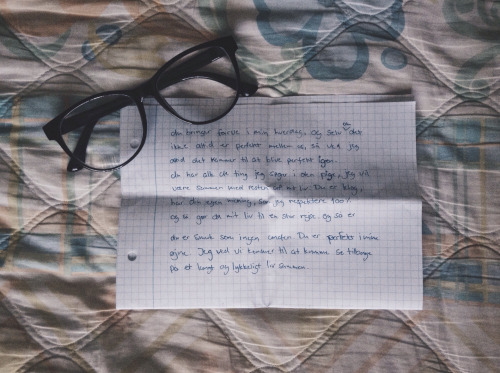 du bringer farve i min hverdag, og selv om det
ikke altid er perfekt mellem os, så ved jeg
at det kommer til at blive perfekt igen.
du har alle de ting jeg søger i en pige, jeg vil
være sammen med resten af mit liv. Du er klog,
har din egen mening, som jeg respektere 100%
og så gør du mit liv til en stor rejse. Og så er
du er smuk som ingen anden. Du er perfekt i mine
øjne. Jeg ved vi kommer til at komme se tilbage
på et langt og lykkeligt liv sammen.